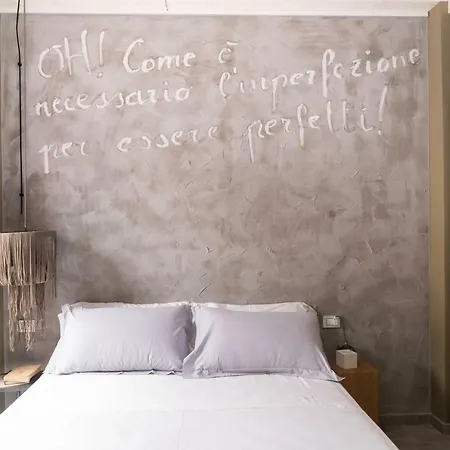 OH! Come è
necessario l'imperfezione
per essere perfetti!